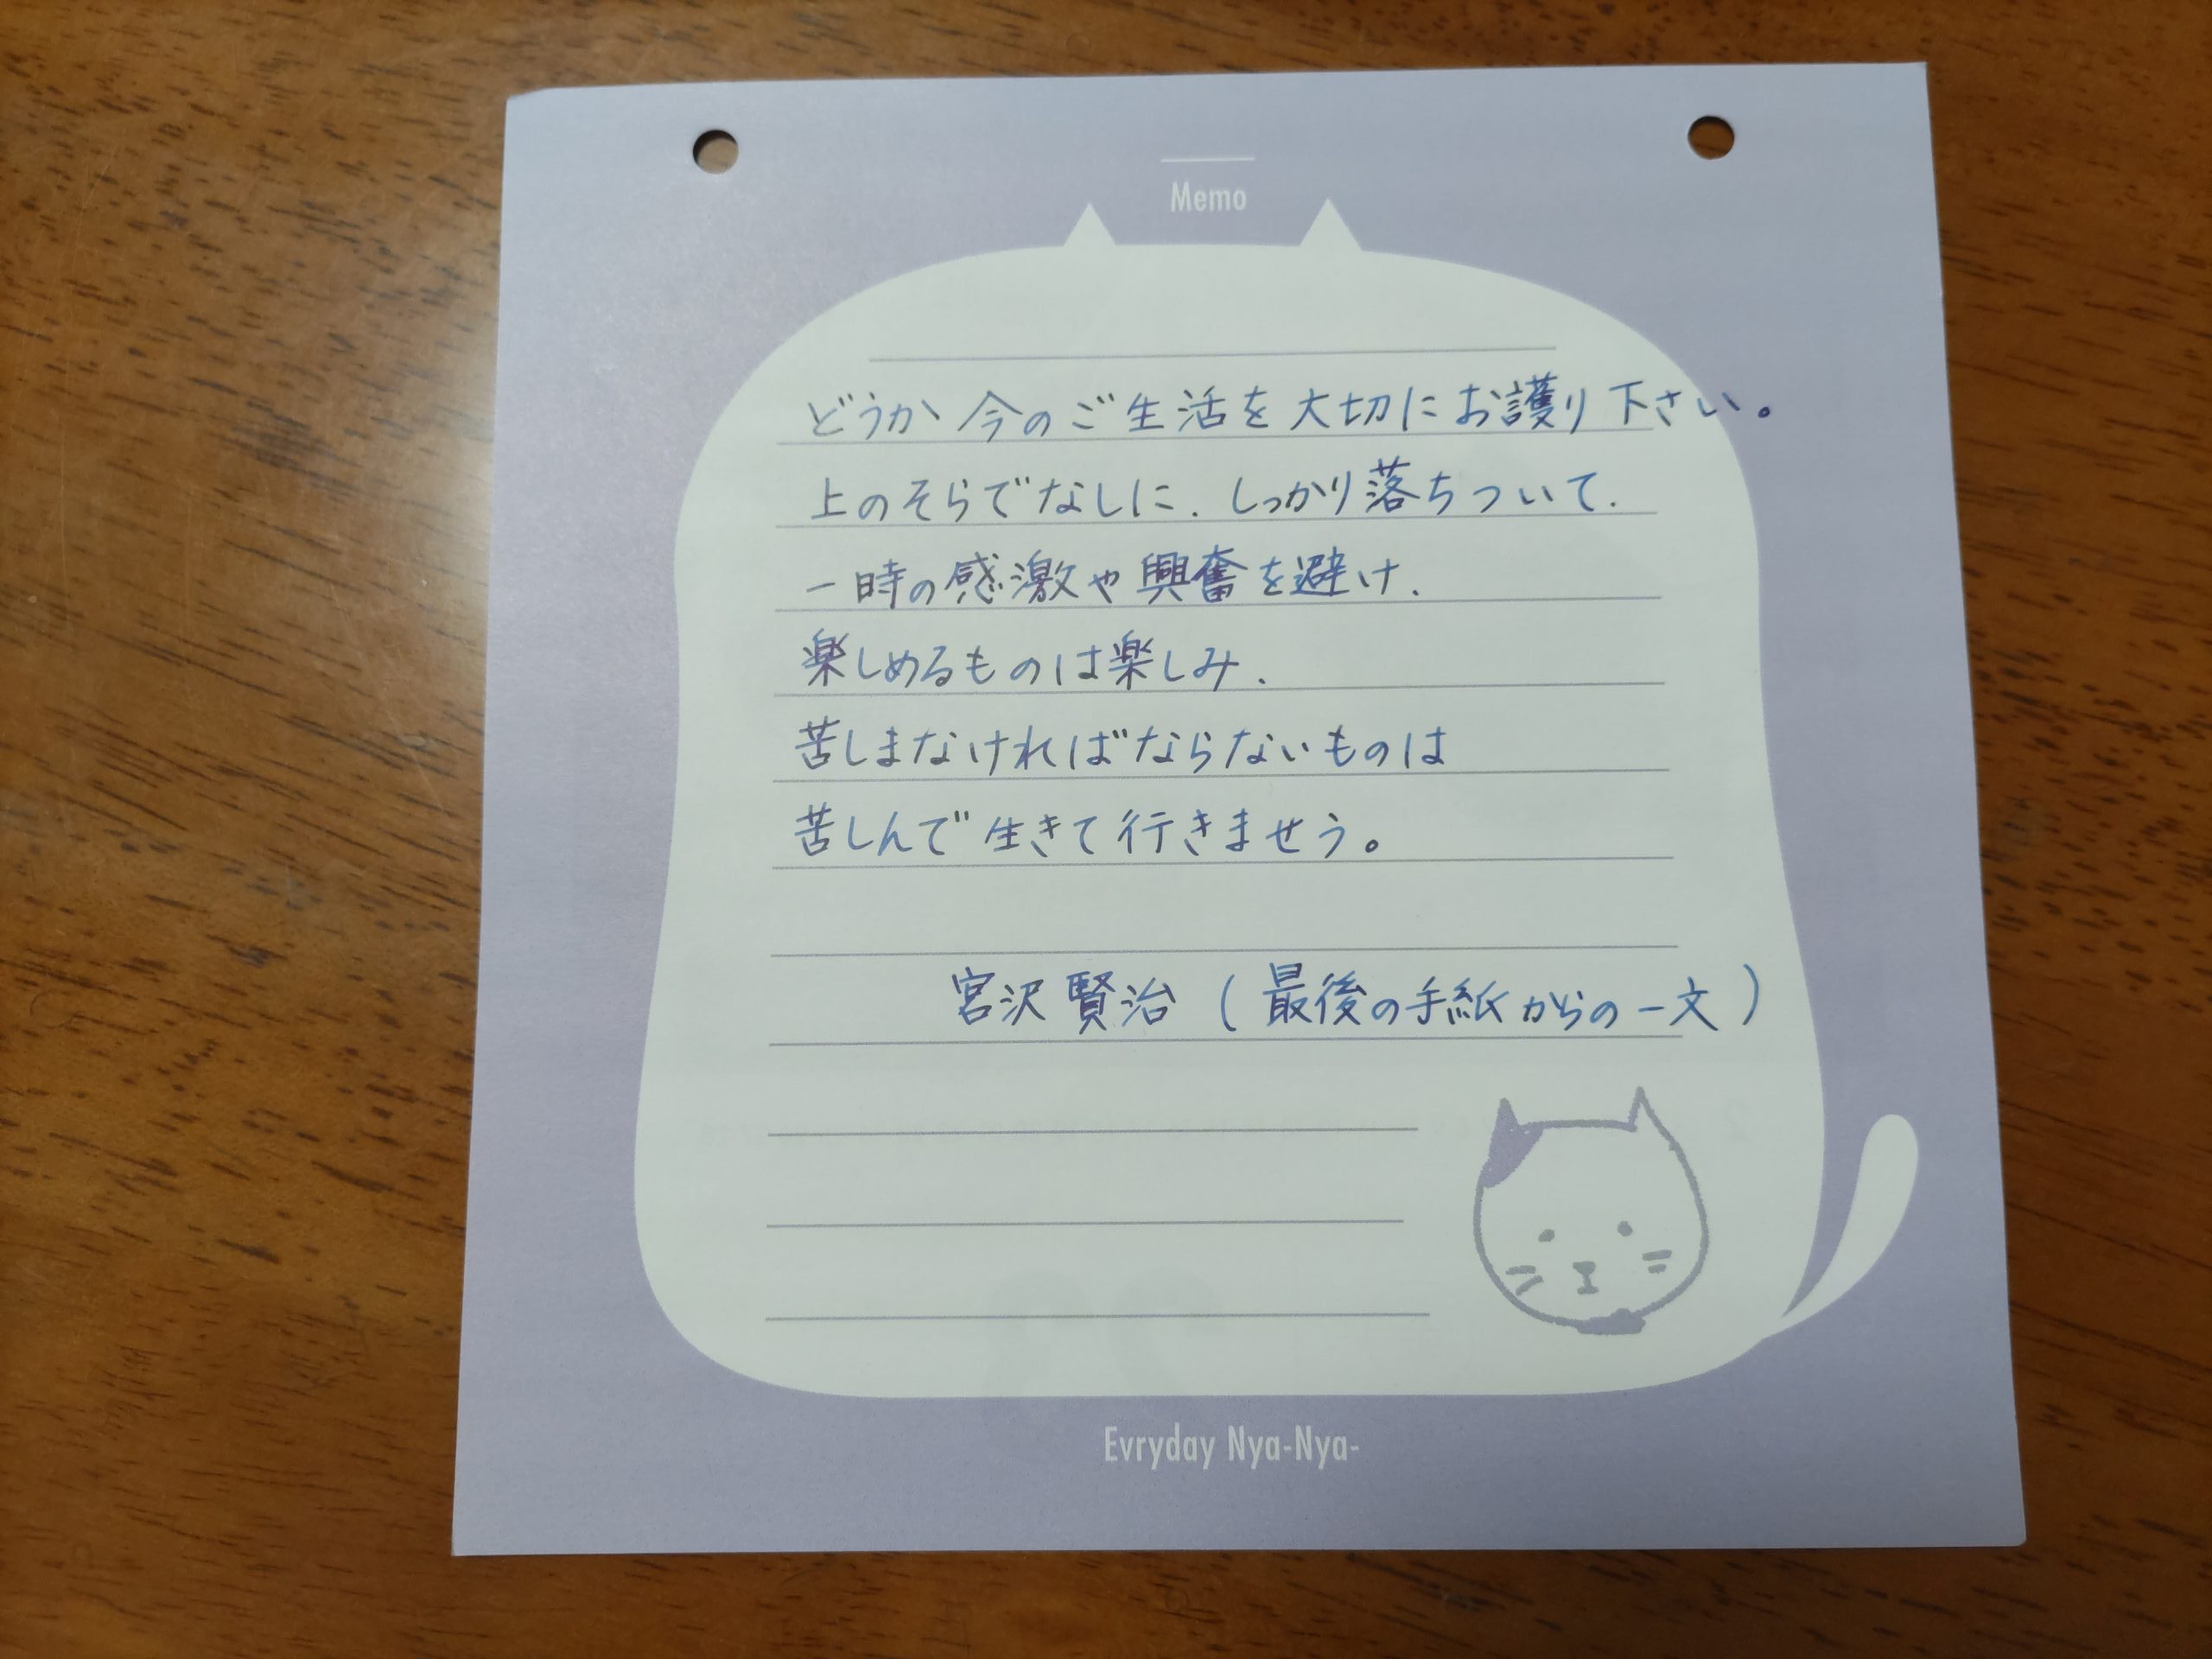 Memo
どうか今のご生活を大切にお護り下さい。
上のそらでなしに．しっかり落ちついて．
一時の感激や興奮を避け．
楽しめるものは楽しみ．
苦しまなければならないものは
苦しんで生きて行きませう。
宮沢賢治（最後の手紙からの一文）
Evryday Nya-Nya-